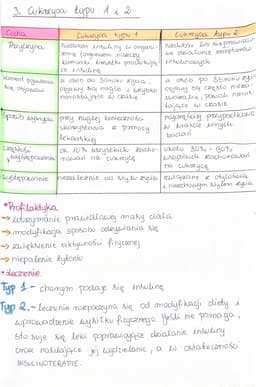 3. Cukrzyca typu 1 i 2
Cecha
Cukrzyca typu 1
Cukrzyca typu 2
Przyczyna
Niedobór insuliny w organi-
zmie (organizm niszczy
komórki trzustki produkują-
ce insulinę
na działanie receptorów
insulinowych
Moment pojawienia
się objawów
u osób do 30 roku życia,
objawy są nagłe i szybko
narastające w czasie
u osób po 35 roku życia
objawy są często niezau-
ważalne, powoli narasta-
jące w czasie
Sposób wykrycia
przy nagłej konieczności
skorzystania z pomocy
lekarskiej
najczęściej przypadkowo
w trakcie innych
badań
Częstość
występowania
ok 10% wszystkich zacho-
rowań na cukrzycę
około 80% - 90%
wszystkich zachorowań
na cukrzycę
Występowanie
niezależnie od stylu życia
związane z otyłością
i niezdrowym stylem życia
*Profilaktyka
→ utrzymanie prawidłowej masy ciała
→ modyfikacja sposobu odżywiania się
→ zwiększenie aktywności fizycznej
→ niepalenie tytoniu
*leczenie
Typ 1 - chorym podaje się insulinę
Typ 2. - leczenie rozpoczyna się od modyfikacji diety i
wprowadzenie wysiłku fizycznego. Jeśli nie pomaga,
stosuje się leki poprawiające działanie insuliny
oraz nasilające jej wydzielanie, a w ostateczności
INSULINOTERAPIĘ.